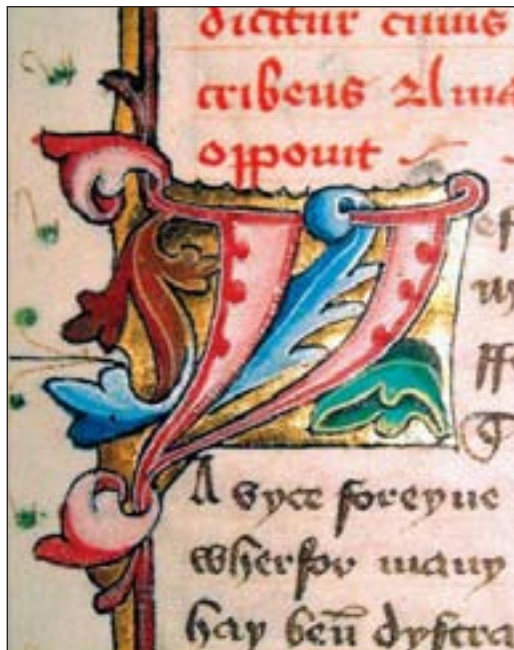 dicitur cuius
tribens Alma
opponit
ef
w
ff
A syce foreyne
wherfor many
hay ben̄ dystra